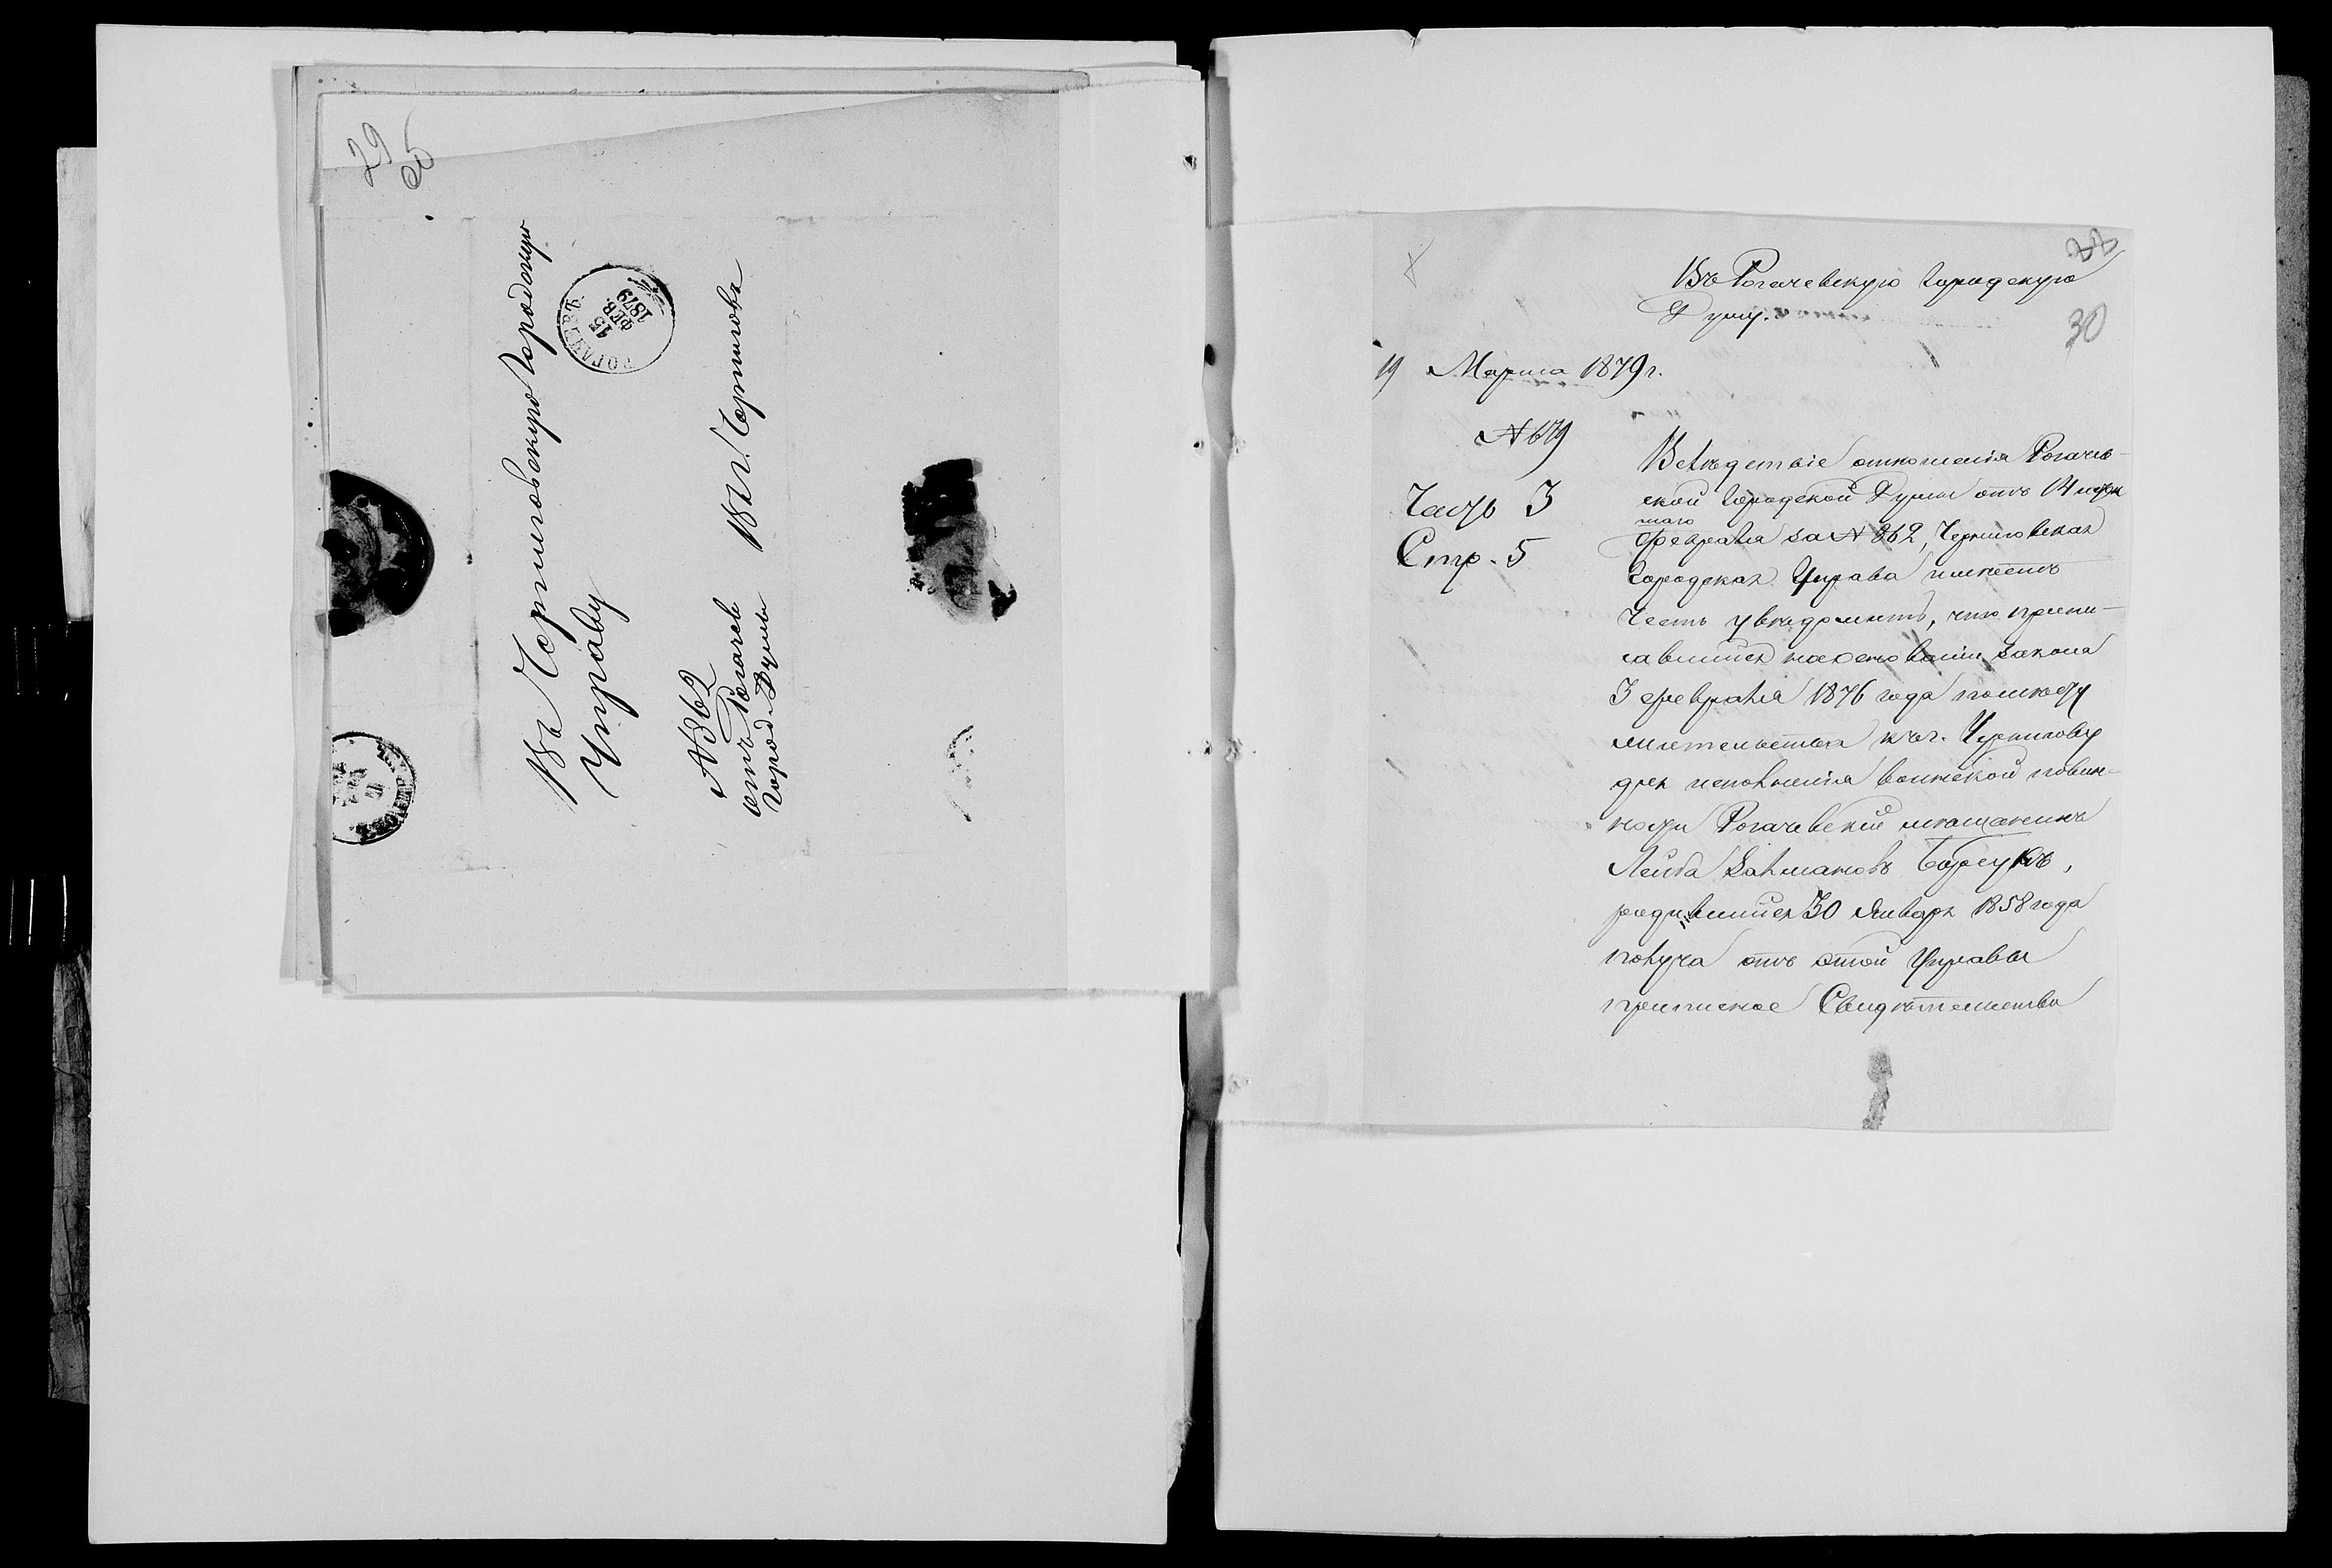 29
об
Въ Черниговскую Городскую
Управу
РОГАЧЕВЪ
15
ФЕВ.
1879
№ 862
отъ Рогачев
Город. Думы
Въ г. Черниговъ
30
Въ Рогачевскую Городскую
Думу.
19 Марта 1879 г.
№ 679
Часть 3
Стр. 5
Вслѣдствіе отношенія Рогачев-
ской Городской Думы отъ 14 мину
шаго
февраля за № 862, Черниговская
Городская Управа имѣетъ
честь увѣдомить, что припи-
савшійся на основаніи закона
3 февраля 1876 года по мѣсту
жительства къ г. Чернигову
для исполненія воинской повин-
ности Рогачевскій мѣщанинъ
Лейба Залмановъ Борсукъ,
родившійся 30 Января 1858 года
получа отъ этой Управы
приписное Свидѣтельство